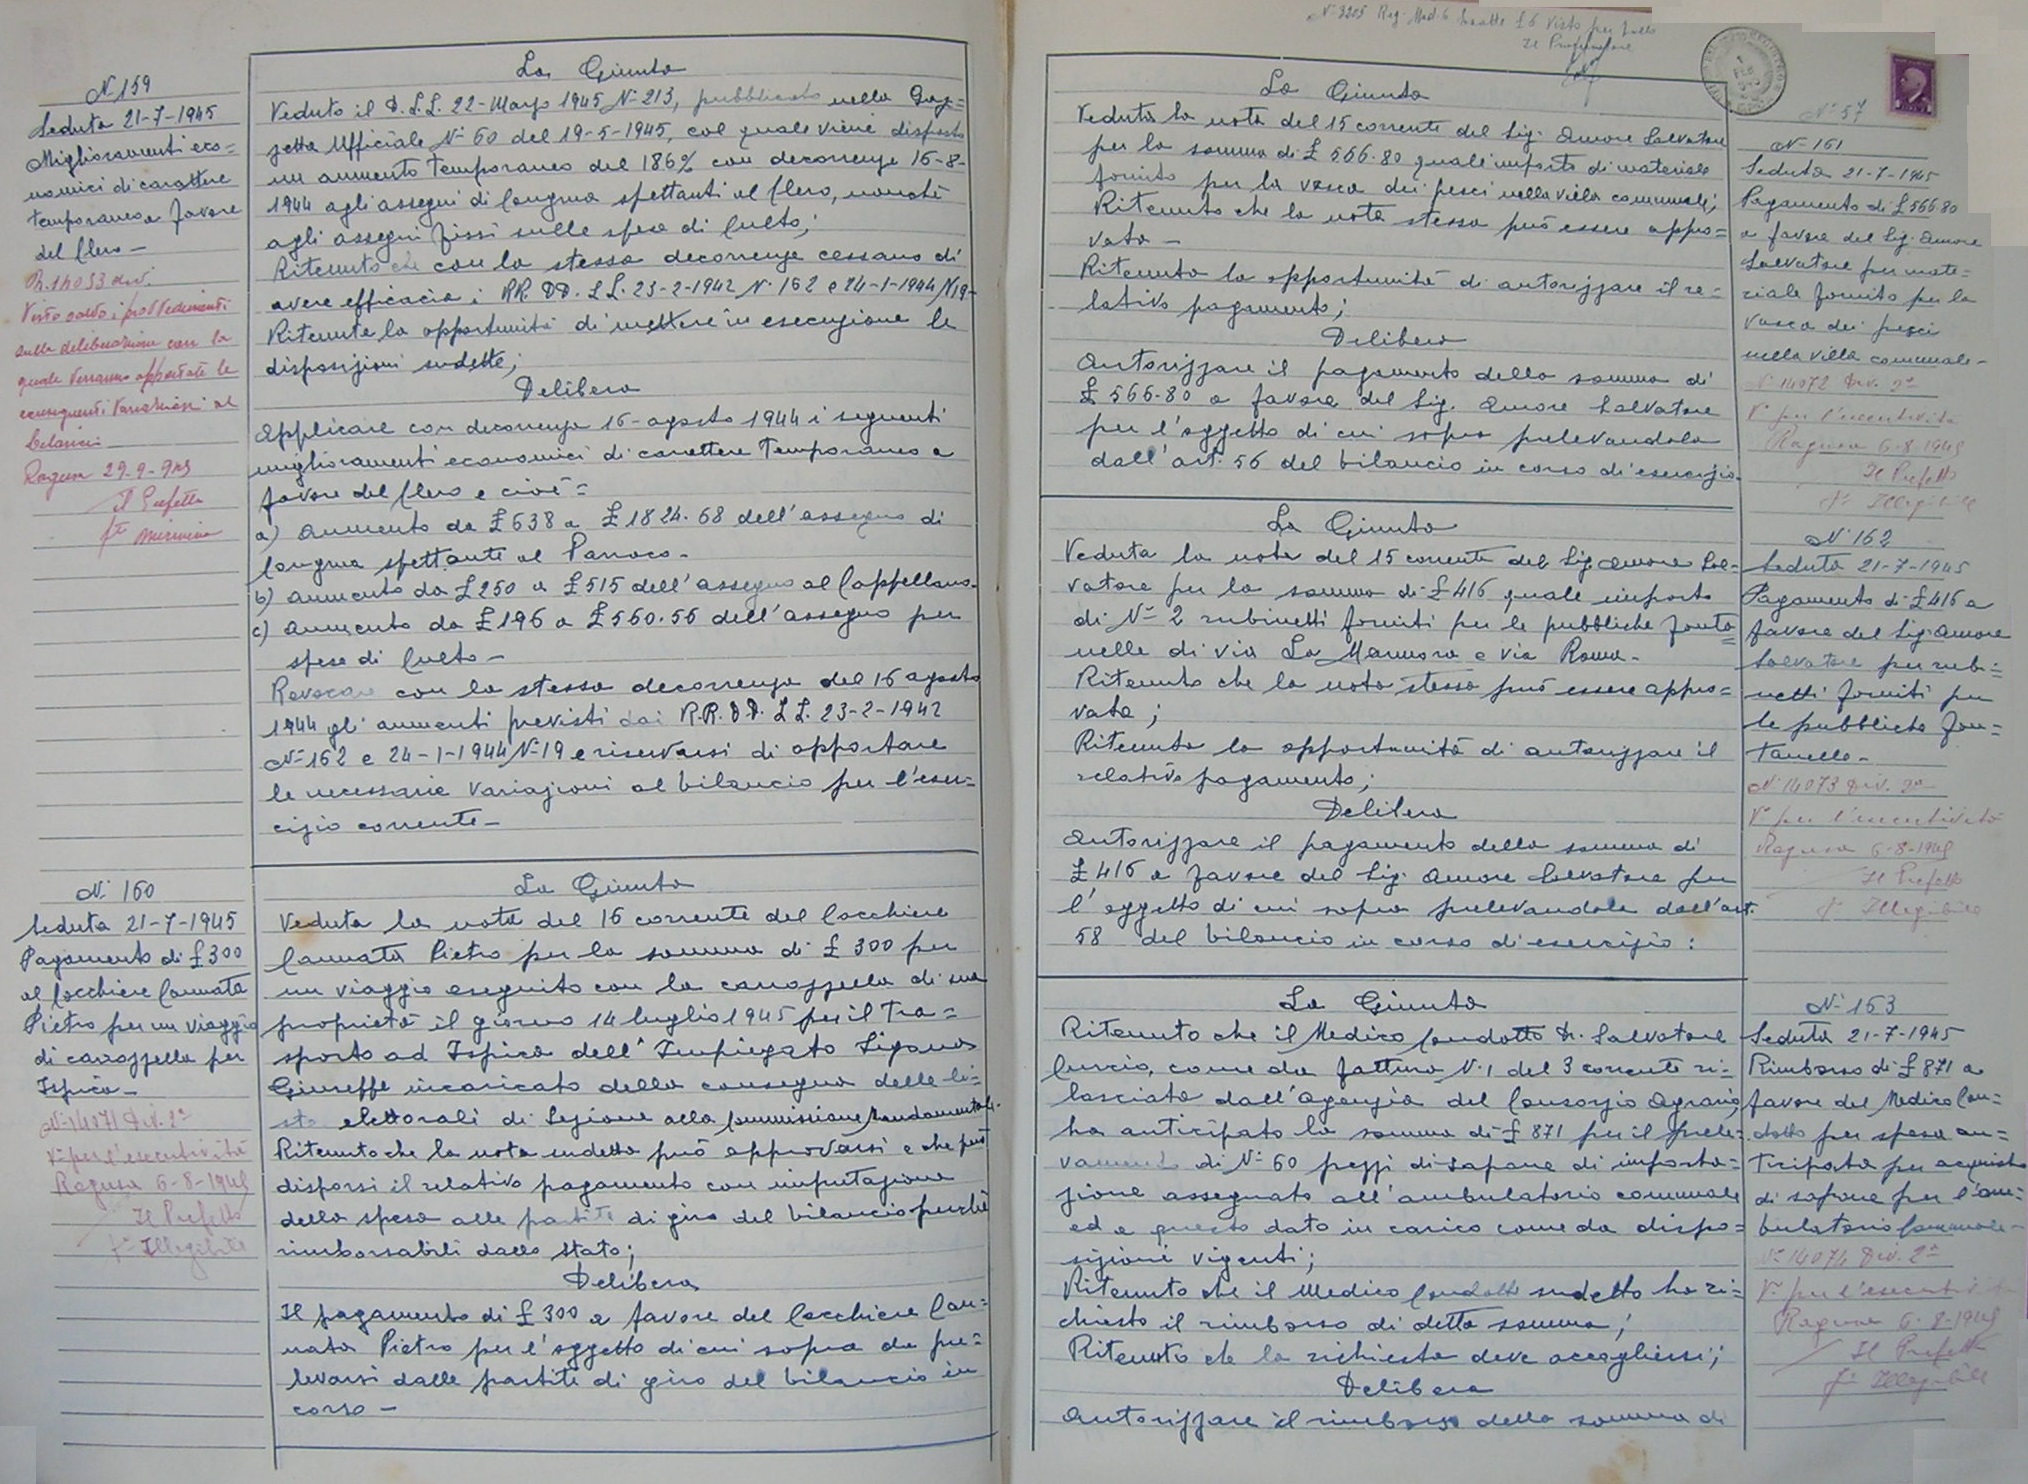 N. 159
Seduta 21-7-1945
Miglioramenti eco=
nomici di carattere
temporaneo a favore
del Clero -
Visto salvo i provvedimenti
sulla deliberazione con la
quale verranno apportate le
conseguenti variazioni al
bilancio
Ragusa 29-9-945
Il Prefetto
La Giunta
Veduto il D.L.L. 22-Marzo 1945 N. 213, pubblicato nella Gaz=
zetta Ufficiale N. 60 del 19-5-1945, col quale viene disposto
un aumento temporaneo del 186% con decorrenza 16-8-
1944 agli assegni di Congrua spettanti al Clero, nonchè
agli assegni fissi sulle spese di Culto;
Ritenuto che con la stessa decorrenza cessano di
avere efficacia i RR. DD. LL. 23-2-1942 N. 162 e 24-1-1944 N 19-
Ritenuta la opportunità di mettere in esecuzione le
disposizioni sudette;
Delibera
Applicare con decorrenza 16-agosto 1944 i seguenti
miglioramenti economici di carattere temporaneo a
favore del Clero e cioè=
a) Aumento da £ 638 a £ 1824.68 dell'assegno di
Congrua spettante al Parroco -
b) Aumento da £ 250 a £ 515 dell'assegno al Cappellano -
c) Aumento da £ 196 a £ 560.56 dell'assegno per
spese di Culto -
Revocare con la stessa decorrenza del 16 agosto
1944 gli aumenti previsti dai R.R. DD. LL. 23-2-1942
N. 162 e 24-1-1944 N. 19 e riservarsi di apportare
le necessarie variazioni al bilancio per l'eser=
cizio corrente -
N. 160
Seduta 21-7-1945
Pagamento di £ 300
al Cocchiere Cannata
Pietro per un viaggio
di carrozzella per
Ispica -
N. 14071 Div. 2ª
Vº per l'esecutività
Ragusa 6-8-1945
Il Prefetto
Fº Illegibile
La Giunta
Veduta la nota del 16 corrente del Cocchiere
Cannata Pietro per la somma di £ 300 per
un viaggio eseguito con la carrozzella di sua
proprietà il giorno 14 luglio 1945 per il tra=
sporto ad Ispica dell'Impiegato
Giuseppe incaricato della consegna delle li=
ste elettorali di Sezione alla Commissione Mandamentale.
Ritenuto che la nota sudetta può approvarsi e che può
disporsi il relativo pagamento con imputazione
della spesa alle partite di giro del bilancio perchè
rimborsabili dallo Stato;
Delibera
Il pagamento di £ 300 a favore del Cocchiere Can=
nata Pietro per l'oggetto di cui sopra da pre=
levarsi dalle partite di giro del bilancio in
corso -
N. 57
La Giunta
Veduta la nota del 15 corrente del Sig. Amore Salvatore
per la somma di £ 566.80 quale importo di materiale
fornito per la vasca dei pesci nella villa comunale;
Ritenuto che la nota stessa può essere appro=
vata -
Ritenuta la opportunità di autorizzare il re=
lativo pagamento;
Delibera
Autorizzare il pagamento della somma di
£ 566.80 a favore del Sig. Amore Salvatore
per l'oggetto di cui sopra prelevandola
dall'art. 56 del bilancio in corso di esercizio.
N. 161
Seduta 21-7-1945
Pagamento di £ 566.80
a favore del Sig. Amore
Salvatore per mate=
riale fornito per la
vasca dei pesci
nella villa comunale -
N. 14072 Div. 2ª
Vº per l'esecutività
Ragusa 6-8-1945
Il Prefetto
Fº Illegibile
La Giunta
Veduta la nota del 15 corrente del Sig. Amore Sal=
vatore per la somma di £ 416 quale importo
di N. 2 rubinetti forniti per le pubbliche fonta=
nelle di via La Marmora e via Roma -
Ritenuto che la nota stessa può essere appro=
vata;
Ritenuta la opportunità di autorizzare il
relativo pagamento;
Delibera
Autorizzare il pagamento della somma di
£ 416 a favore del Sig. Amore Salvatore per
l'oggetto di cui sopra prelevandola dall'art.
58 del bilancio in corso di esercizio:
N. 162
Seduta 21-7-1945
Pagamento di £ 416 a
favore del Sig. Amore
Salvatore per rubi=
netti forniti per
le pubbliche fon=
tanelle -
N. 14073 Div. 2ª
Vº per l'esecutività
Ragusa 6-8-1945
Il Prefetto
Fº Illegibile
La Giunta
Ritenuto che il Medico Condotto Dr. Salvatore
come da fattura N. 1 del 3 corrente ri=
lasciata dall'Agenzia del Consorzio Agrario,
ha anticipato la somma di £ 871 per il prele=
vamento di N. 60 pezzi di sapone di importa=
zione assegnato all'ambulatorio comunale
ed a questo dato in carico come da dispo=
sizioni vigenti;
Ritenuto che il Medico Condotto sudetto ha ri=
chiesto il rimborso di detta somma;
Ritenuto che la richiesta deve accogliersi;
Delibera
Autorizzare il rimborso della somma di
N. 163
Seduta 21-7-1945
Rimborso di £ 871 a
favore del Medico Con=
dotto per spesa an=
ticipata per acquisto
di sapone per l'am=
bulatorio Comunale -
N. 14074 Div. 2ª
Vº per l'esecutività
Ragusa 6-8-1945
Il Prefetto
Fº Illegibile